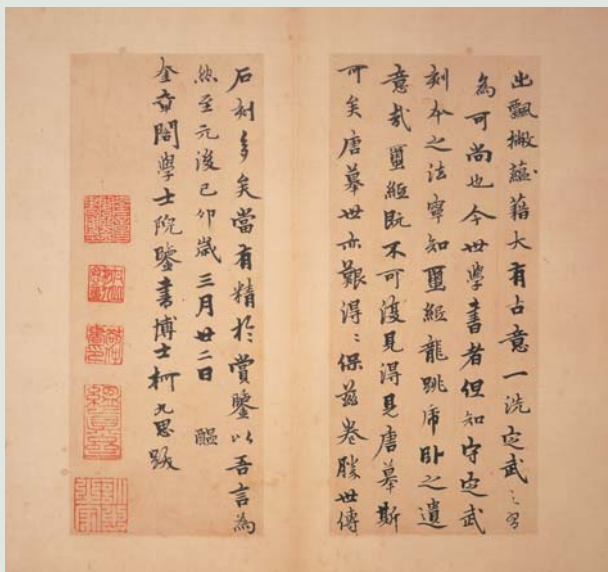 出飄撇蘊藉大有古意一洗定武之習
為可尚也今世學書者但知守定武
刻本之法寧知繭紙龍跳虎卧之遺
意哉繭紙既不可復見得見唐摹斯
可矣唐摹世亦艱得〻保兹卷勝世傳
石刻多矣當有精於賞鑒以吾言為
然至元後己卯歲三月廿二日 醖
奎章閣學士院鑒書博士柯九思跋